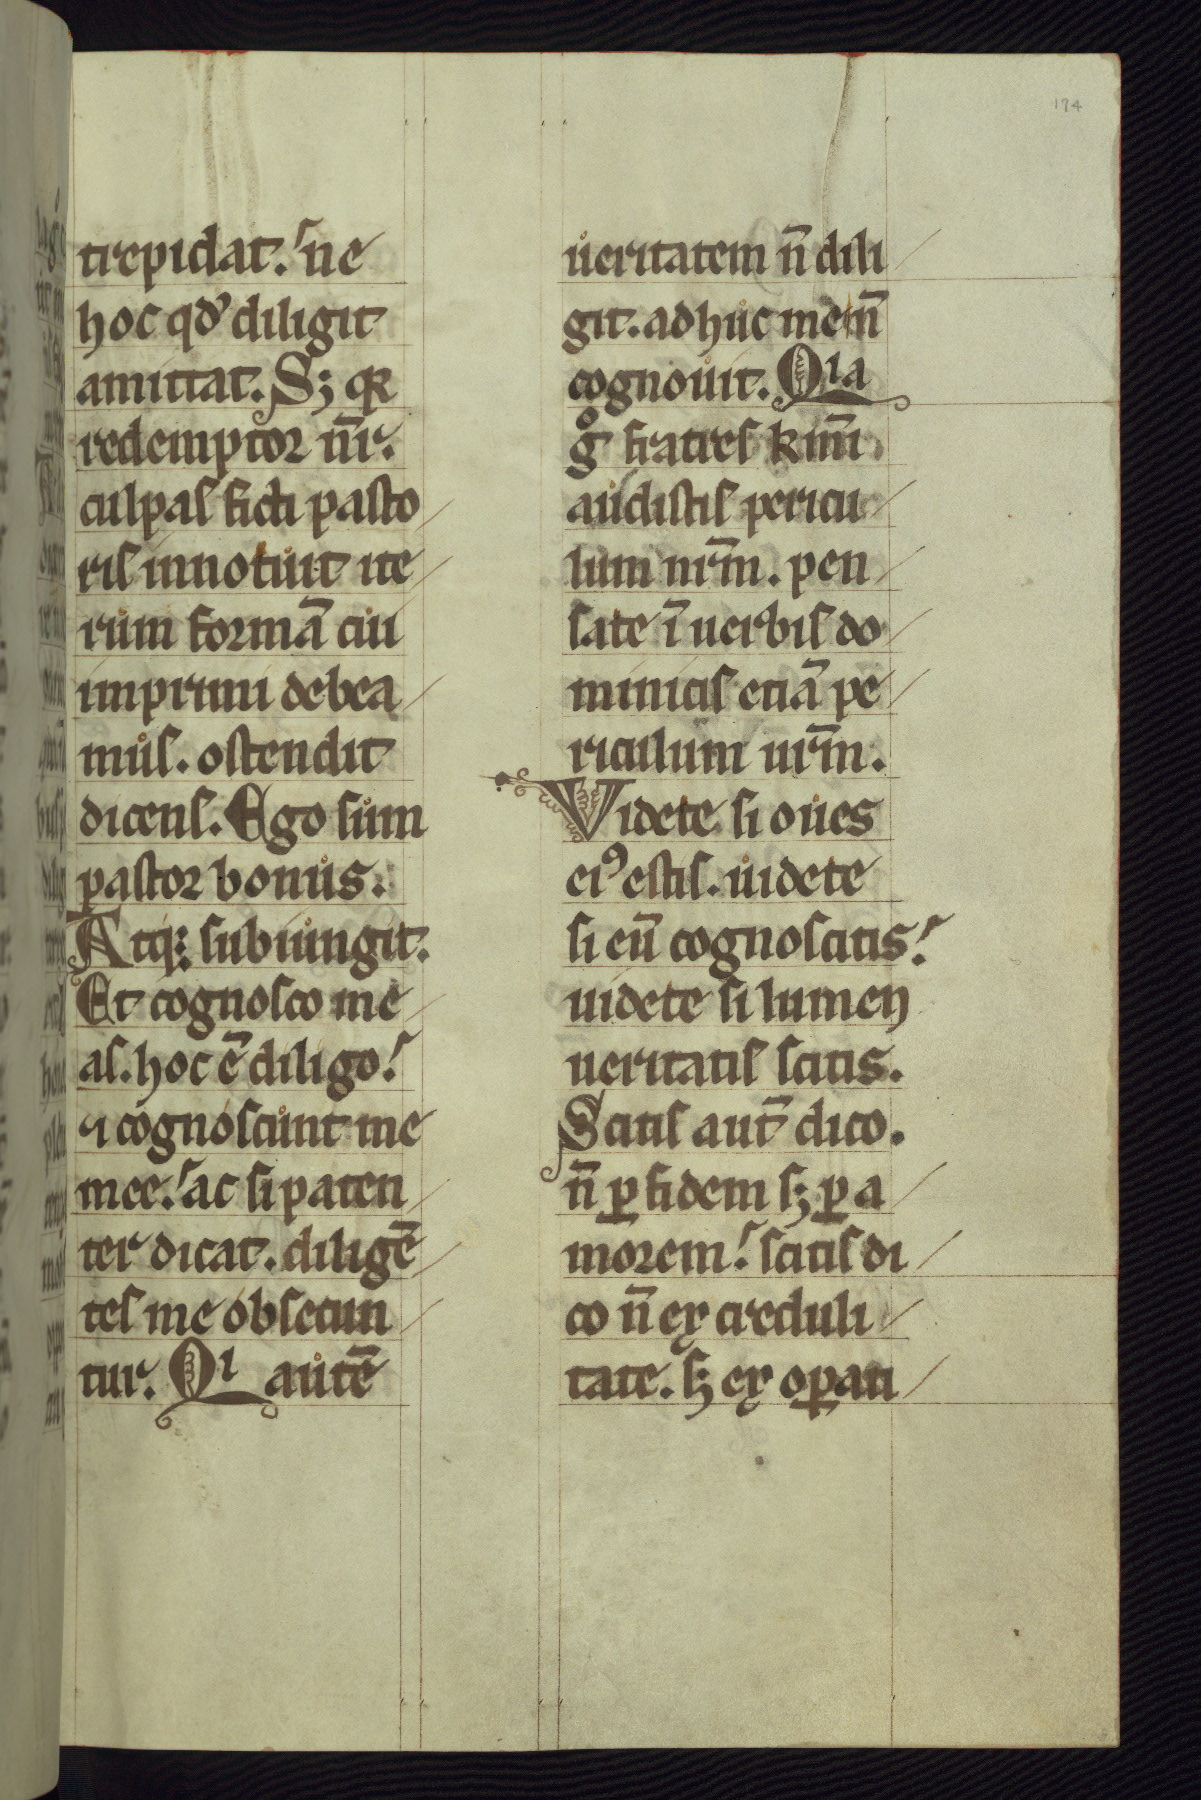 174
trepidat. ne
hoc qd̕ diligit
amittat. Sꝫ qꝛ
redemptoꝛ nr̄.
culpas ficti pasto
ris innotuit ite
rum foꝛmā cui
imprimi debea
mus. ostendit
dicens. Ego sum
pastoꝛ bonus.
Atqꝫ subiungit.
Et cognosco me
as. hoc ē diligo.
⁊ cognoscunt me
mee. ac si paten
ter dicat. diligē
tes me obsecun
tur. Qi autē
ueritatem n̄ dili
git. adhuc me n̄
cognouit. Qia
gͦ fratres kr̄mi
audistis pericu
lum nr̄m. pen
sate ī uerbis do
minicis etiā pe
riculum ur̄m.
Videte si oues
eiꝰ estis. uidete
si eū cognoscitis.
uidete si lumen
ueritatis scitis.
Scitis aut̄ dico.
n̄ ꝑ fidem sꝫ ꝑ a
moꝛem. scitis di
co n̄ ex creduli
tate. sꝫ ex oꝑati